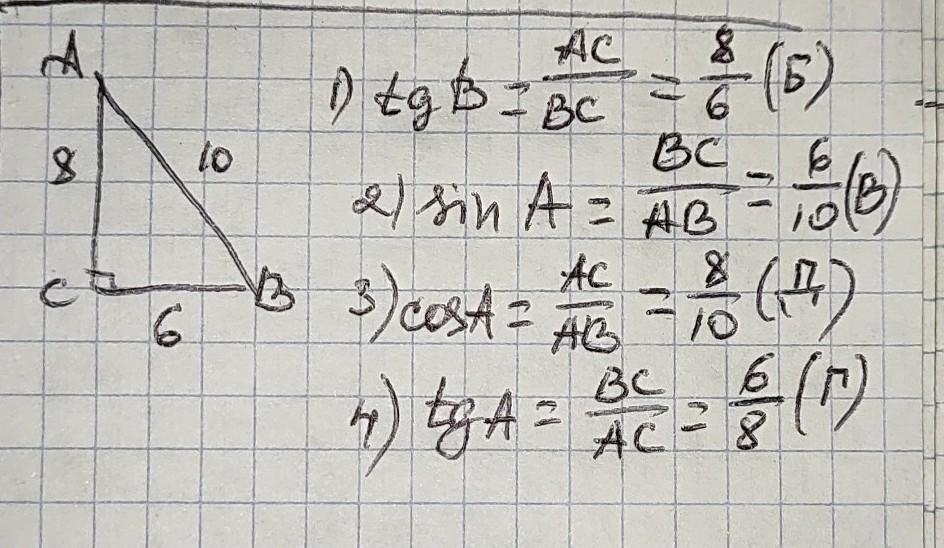 A
8
10
C
B
6
1) tg B = AC/BC = 8/6 (Б)
2) sin A = BC/AB = 6/10 (В)
3) cos A = AC/AB = 8/10 (Д)
4) tg A = BC/AC = 6/8 (Г)